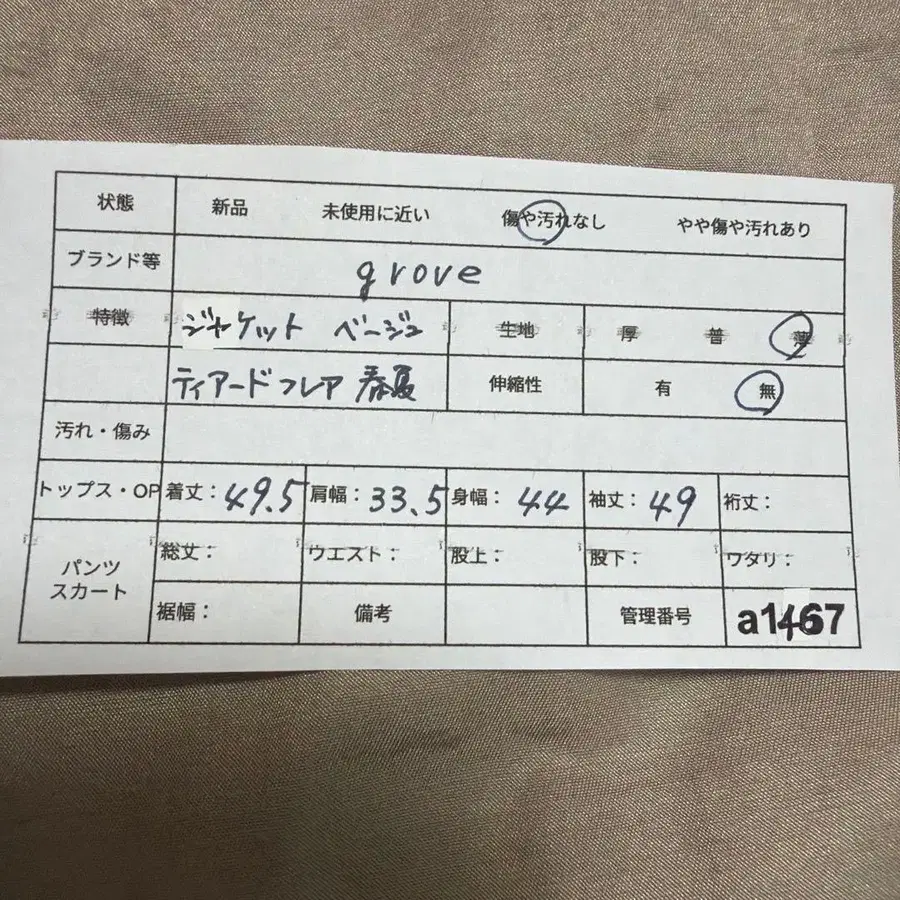 状態 新品 未使用に近い 傷や汚れなし やや傷や汚れあり
ブランド等 grove
特徴 ジャケット ベージュ 生地 厚 普 薄
ティアードフレア 春夏 伸縮性 有 無
汚れ・傷み
トップス・OP 着丈:49.5 肩幅:33.5 身幅:44 袖丈:49 裄丈:
パンツ 総丈: ウエスト: 股上: 股下: ワタリ:
スカート 裾幅: 備考 管理番号 a1467